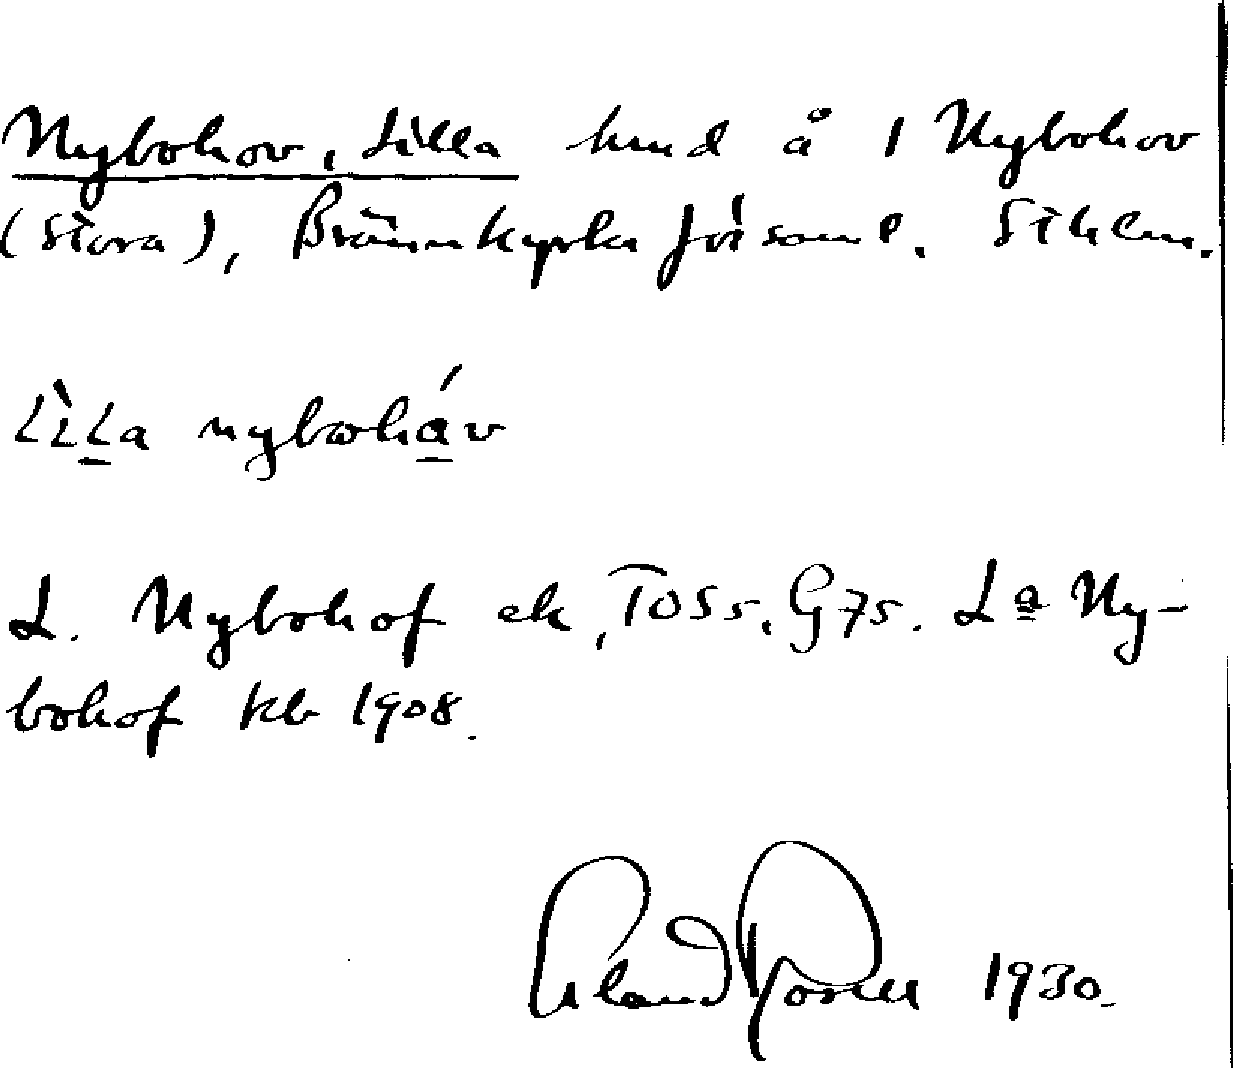 Nybohov, Lilla hmd å 1 Nybohov
(Stora), Brännkyrka förs om l. Sthlm.
Lìla nyboháv
L. Nybohof ek, TOS 5, G75. La Ny-
bohof kb 1908.
Erland Rosell 1930.